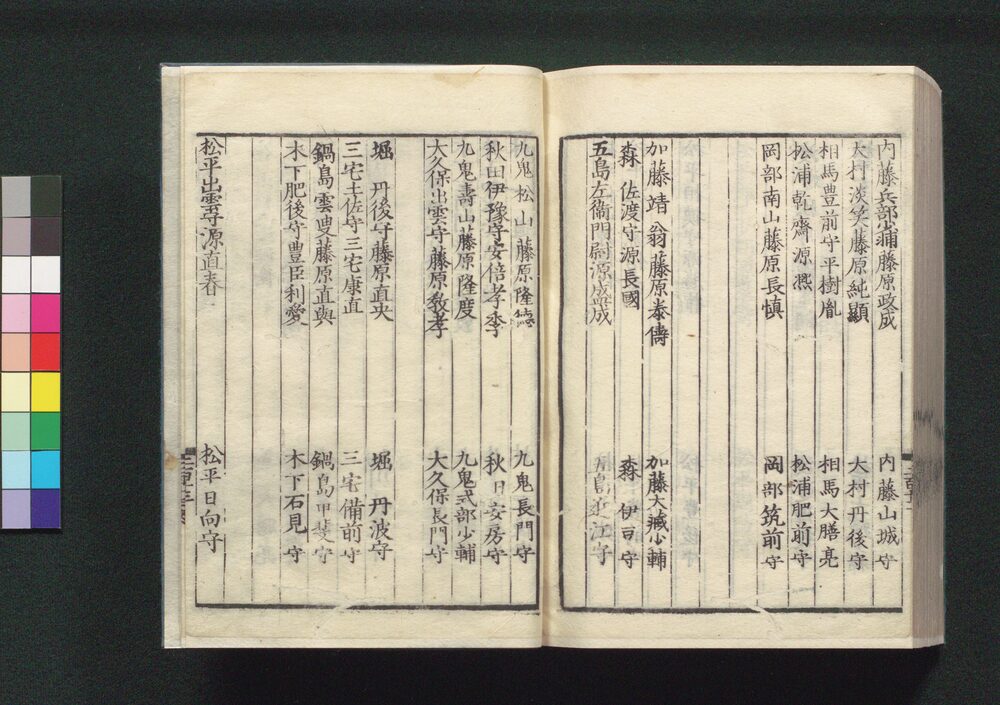 内藤兵部少輔藤原政成 内藤山城守
大村淡笑藤原純顯 大村丹後守
相馬豊前守平樹胤 相馬大膳亮
松浦乾齋源凞 松浦肥前守
岡部南山藤原長慎 岡部筑前守
加藤靖翁藤原泰儔 加藤大藏少輔
森佐渡守源長國 森伊豆守
五島左衞門尉源盛成 五島近江守
九鬼松山藤原隆德 九鬼長門守
秋田伊豫守安倍孝季 秋田安房守
九鬼壽山藤原隆度 九鬼式部少輔
大久保出雲守藤原教孝 大久保長門守
堀丹後守藤原直央 堀丹波守
三宅土佐守三宅康直 三宅備前守
鍋島雲叟藤原直與 鍋島甲斐守
木下肥後守豊臣利愛 木下石見守
松平出雲守源直春 松平日向守